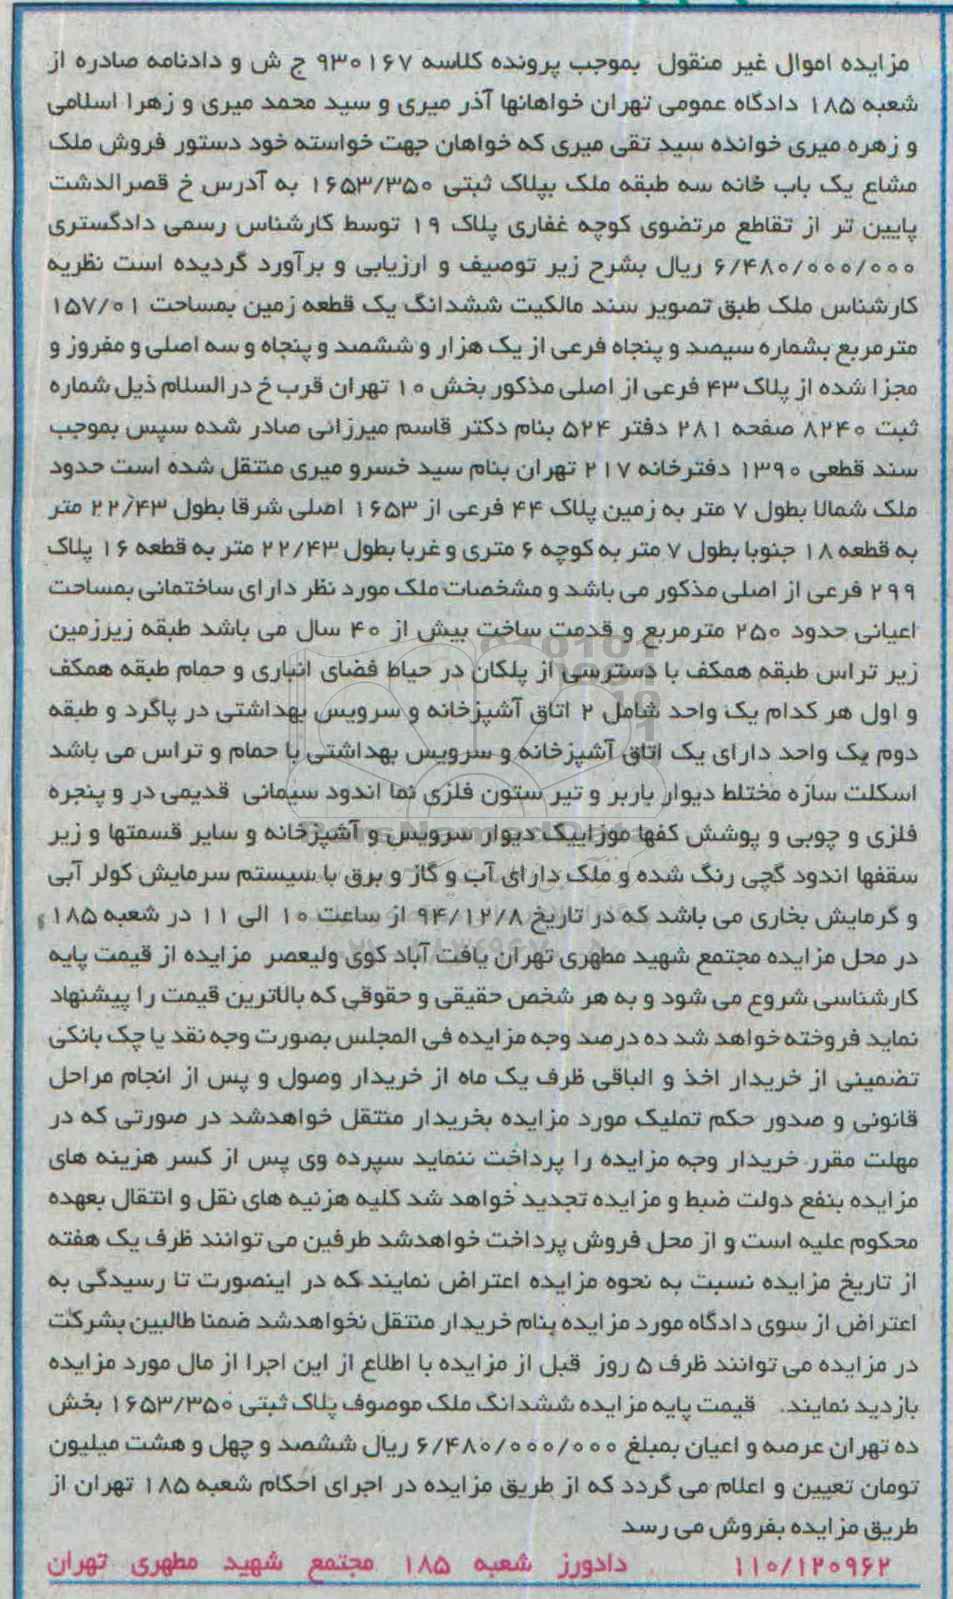 مزایده اموال غیر منقول بموجب پرونده کلاسه ۹۳۰۱۶۷ ج ش و دادنامه صادره از
شعبه ۱۸۵ دادگاه عمومی تهران خواهانها آذر میری و سید محمد میری و زهرا اسلامی
و زهره میری خوانده سید تقی میری که خواهان جهت خواسته خود دستور فروش ملک
مشاع یک باب خانه سه طبقه ملک بپلاک ثبتی ۱۶۵۳/۳۵۰ به آدرس خ قصرالدشت
پایین تر از تقاطع مرتضوی کوچه غفاری پلاک ۱۹ توسط کارشناس رسمی دادگستری
۶/۴۸۰/۰۰۰/۰۰۰ ریال بشرح زیر توصیف و ارزیابی و برآورد گردیده است نظریه
کارشناس ملک طبق تصویر سند مالکیت ششدانگ یک قطعه زمین بمساحت ۱۵۷/۰۱
مترمربع بشماره سیصد و پنجاه فرعی از یک هزار و ششصد و پنجاه و سه اصلی و مفروز و
مجزا شده از پلاک ۴۳ فرعی از اصلی مذکور بخش ۱۰ تهران قرب خ درالسلام ذیل شماره
ثبت ۸۲۴۰ صفحه ۲۸۱ دفتر ۵۲۴ بنام دکتر قاسم میرزائی صادر شده سپس بموجب
سند قطعی ۱۳۹۰ دفترخانه ۲۱۷ تهران بنام سید خسرو میری منتقل شده است حدود
ملک شمالا بطول ۷ متر به زمین پلاک ۴۴ فرعی از ۱۶۵۳ اصلی شرقا بطول ۲۲/۴۳ متر
به قطعه ۱۸ جنوبا بطول ۷ متر به کوچه ۶ متری و غربا بطول ۲۲/۴۳ متر به قطعه ۱۶ پلاک
۲۹۹ فرعی از اصلی مذکور می باشد و مشخصات ملک مورد نظر دارای ساختمانی بمساحت
اعیانی حدود ۲۵۰ مترمربع و قدمت ساخت بیش از ۴۰ سال می باشد طبقه زیرزمین
زیر تراس طبقه همکف با دسترسی از پلکان در حیاط فضای انباری و حمام طبقه همکف
و اول هر کدام یک واحد شامل ۲ اتاق آشپزخانه و سرویس بهداشتی در پاگرد و طبقه
دوم یک واحد دارای یک اتاق آشپزخانه و سرویس بهداشتی با حمام و تراس می باشد
اسکلت سازه مختلط دیوار باربر و تیر ستون فلزی نما اندود سیمانی قدیمی در و پنجره
فلزی و چوبی و پوشش کفها موزاییک دیوار سرویس و آشپزخانه و سایر قسمتها و زیر
سقفها اندود گچی رنگ شده و ملک دارای آب و گاز و برق با سیستم سرمایش کولر آبی
و گرمایش بخاری می باشد که در تاریخ ۹۴/۱۲/۸ از ساعت ۱۰ الی ۱۱ در شعبه ۱۸۵
در محل مزایده مجتمع شهید مطهری تهران یافت آباد کوی ولیعصر مزایده از قیمت پایه
کارشناسی شروع می شود و به هر شخص حقیقی و حقوقی که بالاترین قیمت را پیشنهاد
نماید فروخته خواهد شد ده درصد وجه مزایده فی المجلس بصورت وجه نقد یا چک بانکی
تضمینی از خریدار اخذ و الباقی ظرف یک ماه از خریدار وصول و پس از انجام مراحل
قانونی و صدور حکم تملیک مورد مزایده بخریدار منتقل خواهدشد در صورتی که در
مهلت مقرر خریدار وجه مزایده را پرداخت ننماید سپرده وی پس از کسر هزینه های
مزایده بنفع دولت ضبط و مزایده تجدید خواهد شد کلیه هزنیه های نقل و انتقال بعهده
محکوم علیه است و از محل فروش پرداخت خواهدشد طرفین می توانند ظرف یک هفته
از تاریخ مزایده نسبت به نحوه مزایده اعتراض نمایند که در اینصورت تا رسیدگی به
اعتراض از سوی دادگاه مورد مزایده بنام خریدار منتقل نخواهدشد ضمنا طالبین بشرکت
در مزایده می توانند ظرف ۵ روز قبل از مزایده با اطلاع از این اجرا از مال مورد مزایده
بازدید نمایند. قیمت پایه مزایده ششدانگ ملک موصوف پلاک ثبتی ۱۶۵۳/۳۵۰ بخش
ده تهران عرصه و اعیان بمبلغ ۶/۴۸۰/۰۰۰/۰۰۰ ریال ششصد و چهل و هشت میلیون
تومان تعیین و اعلام می گردد که از طریق مزایده در اجرای احکام شعبه ۱۸۵ تهران از
طریق مزایده بفروش می رسد
۱۱۰/۱۲۰۹۶۲ دادورز شعبه ۱۸۵ مجتمع شهید مطهری تهران